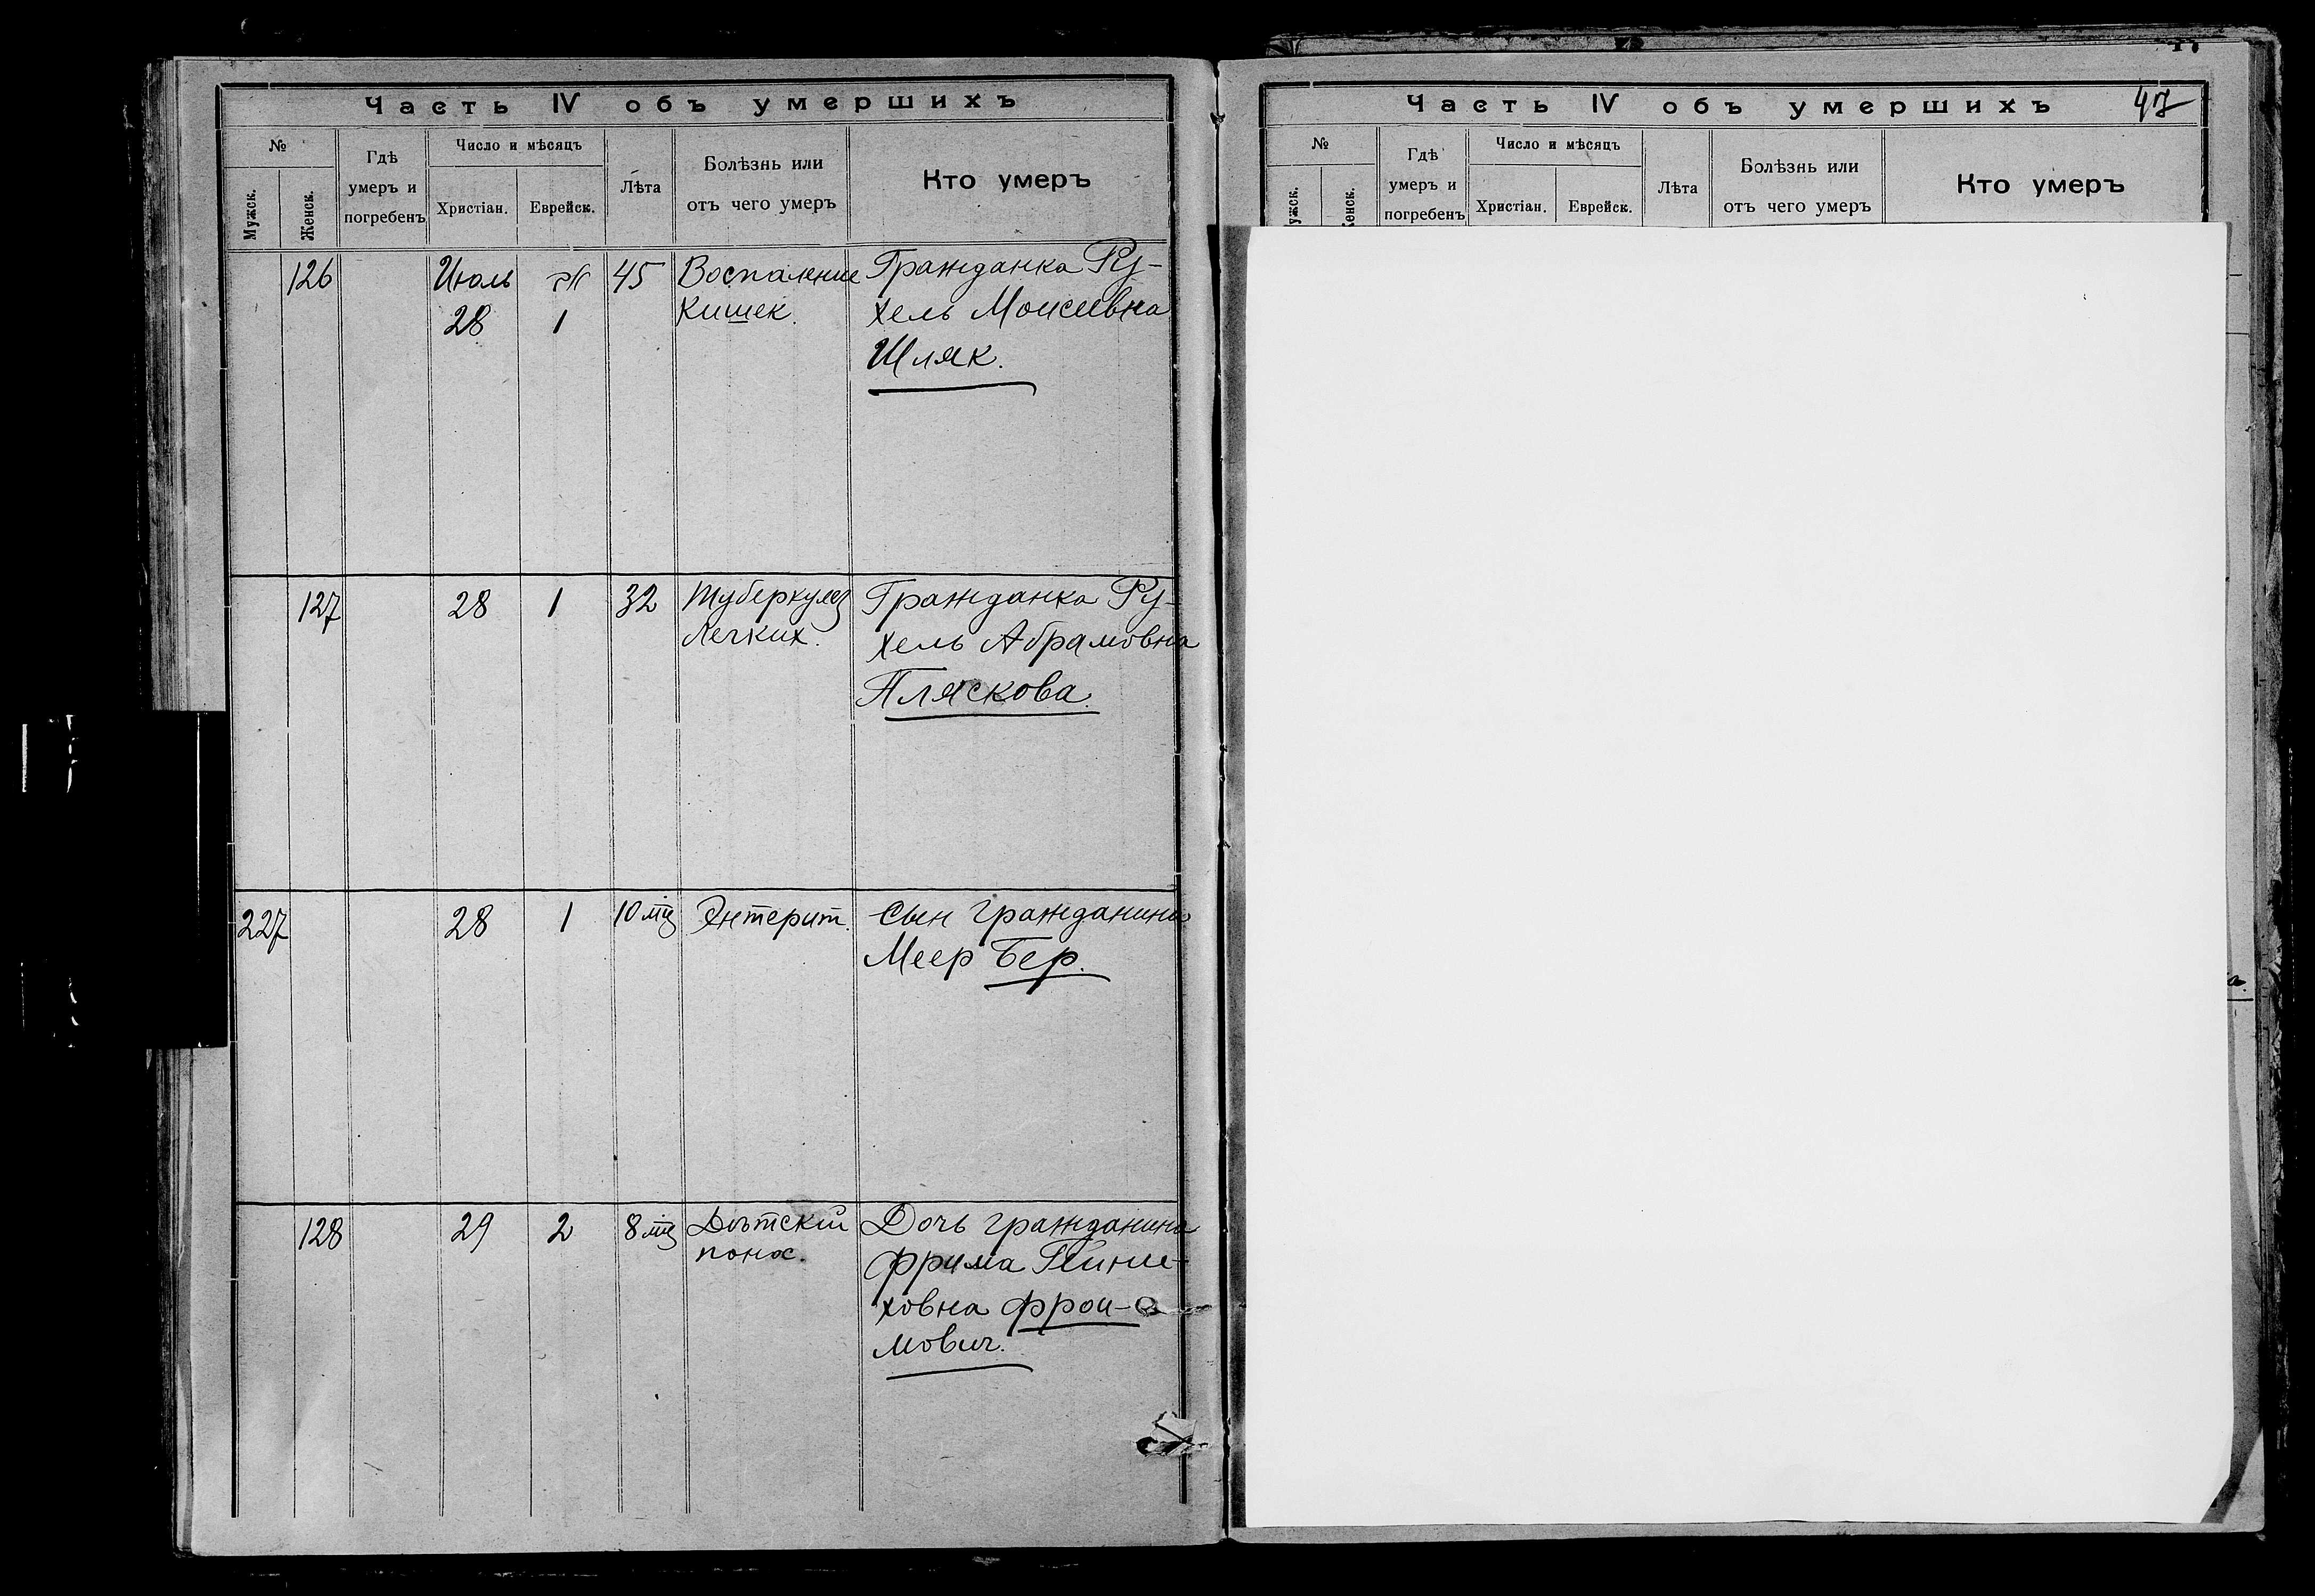 Часть IV объ умершихъ
№
Мужск.
Женск.
Гдѣ
умеръ и
погребенъ
Число и мѣсяцъ
Христіан.
Еврейск.
Лѣта
Болѣзнь или
отъ чего умеръ
Кто умеръ
126 Июль אב 45 Воспаление Гражданка Ру-
28 1 Кишек. хель Моисеевна
Шляк.
127 28 1 32 Туберкулез Гражданка Ру-
Легких. хель Абрамовна
Пляскова.
227 28 1 10 мц Энтерит. Сын гражданина
Меер Бер.
128 29 2 8 мц Дѣтскій Дочь гражданина
понос. Фрима
ховна Фрои-
мович.
Часть IV объ умершихъ 47
№
ужск.
Женск.
Гдѣ
умеръ и
погребенъ
Число и мѣсяцъ
Христіан.
Еврейск.
Лѣта
Болѣзнь или
отъ чего умеръ
Кто умеръ